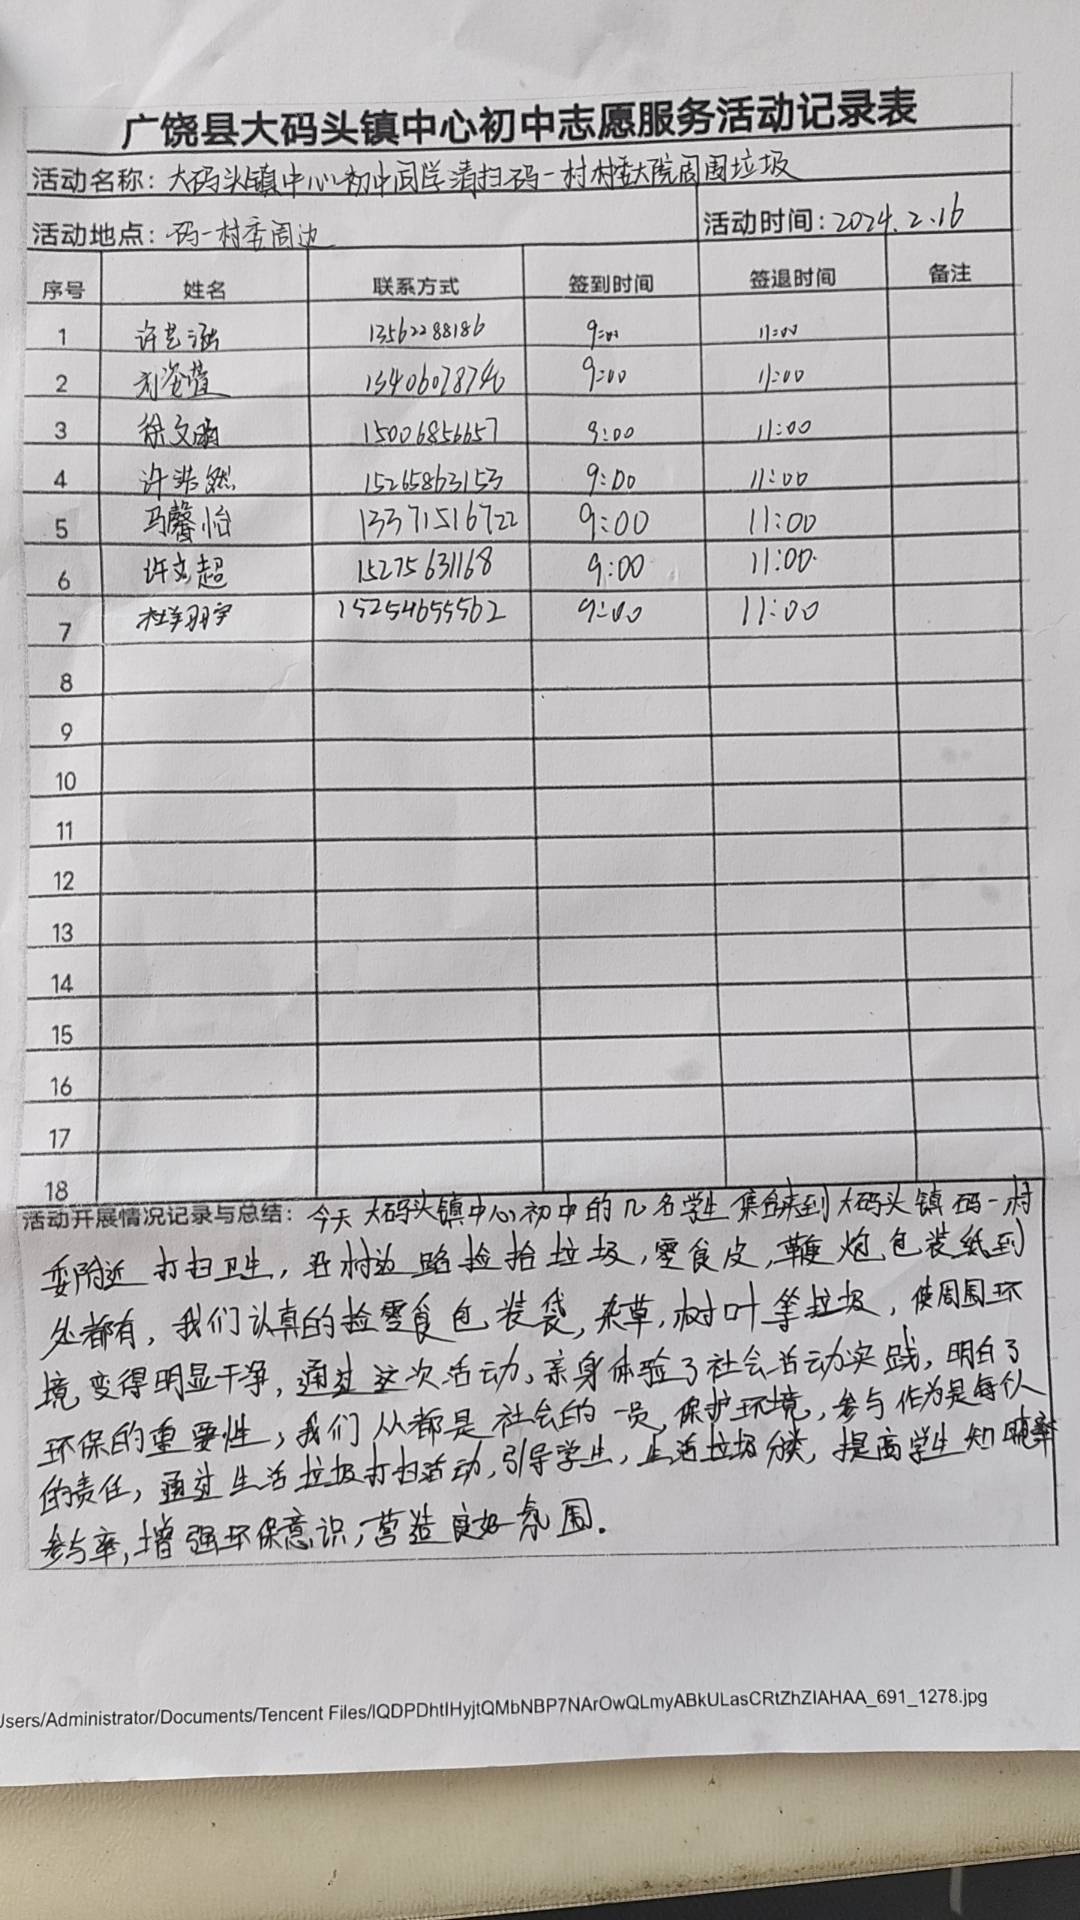 广饶县大码头镇中心初中志愿服务活动记录表
活动名称：大码头镇中心初中同学清扫码一村村委大院周围垃圾
活动地点：码一村委周边 活动时间：2024.2.16
序号 姓名 联系方式 签到时间 签退时间 备注
1 许艺涵 13562288186 9:00 11:00
2 刘姿萱 13406078740 9:00 11:00
3 徐文 15006856657 9:00 11:00
4 许浩然 15265863153 9:00 11:00
5 马馨怡 13371516722 9:00 11:00
6 许克超 15275631168 9:00 11:00.
7 杜翔宇 15254655562 9:00 11:00
8
9
10
11
12
13
14
15
16
17
18
活动开展情况记录与总结：今天大码头镇中心初中的几名学生集合来到大码头镇码一村
委附近打扫卫生，沿村边路捡拾垃圾，零食皮，鞭炮包装纸到
处都有，我们认真的捡零食包装袋，杂草，树叶等垃圾，使周围环
境变得明显干净，通过这次活动，亲身体验了社会活动实践，明白了
环保的重要性，我们从都是社会的一员，保护环境，参与作为是每个人
的责任，通过生活垃圾打扫活动，引导学生，生活垃圾分类，提高学生知晓率
参与率，增强环保意识，营造良好氛围。
Users/Administrator/Documents/Tencent Files/IQDPDhtIHyjtQMbNBP7NArOwQLmyABkULasCRtZhZIAHAA_691_1278.jpg